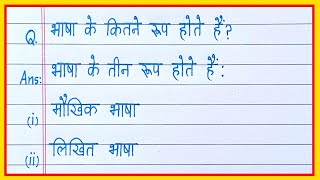 Q. भाषा के कितने रूप होते हैं?
Ans: भाषा के तीन रूप होते हैं:
(i) मौखिक भाषा
(ii) लिखित भाषा